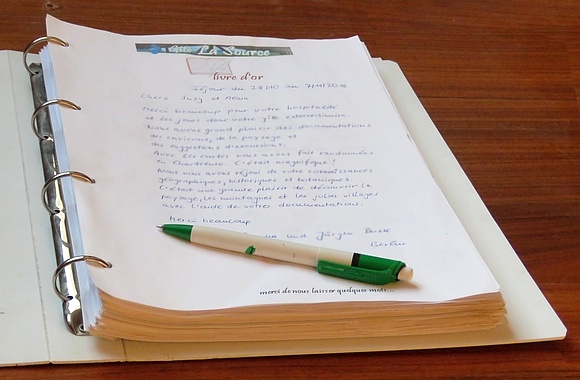 Gîte La Source
livre d'or
Séjour du 28/10 au
Chers Susy et Alain
Merci beaucoup pour votre hospitalité
et les jours dans votre gîte extraordinaire.
Nous avons grand plaisir des documentations
des environs, de la paysage et
des suggestions d'excursions.
Avec les cartes nous avons fait randonnées
en Chartreuse. C'était magnifique!
Nous nous avons réjouis de votre connaissances
géographiques, historiques et botaniques
C'était une grande plaisir de découvrir le
paysage, les montagnes et les jolies villages
avec l'aide de votres documentations.
Merci beaucoup
und Jürgen
Berlin
merci de nous laisser quelques mots...